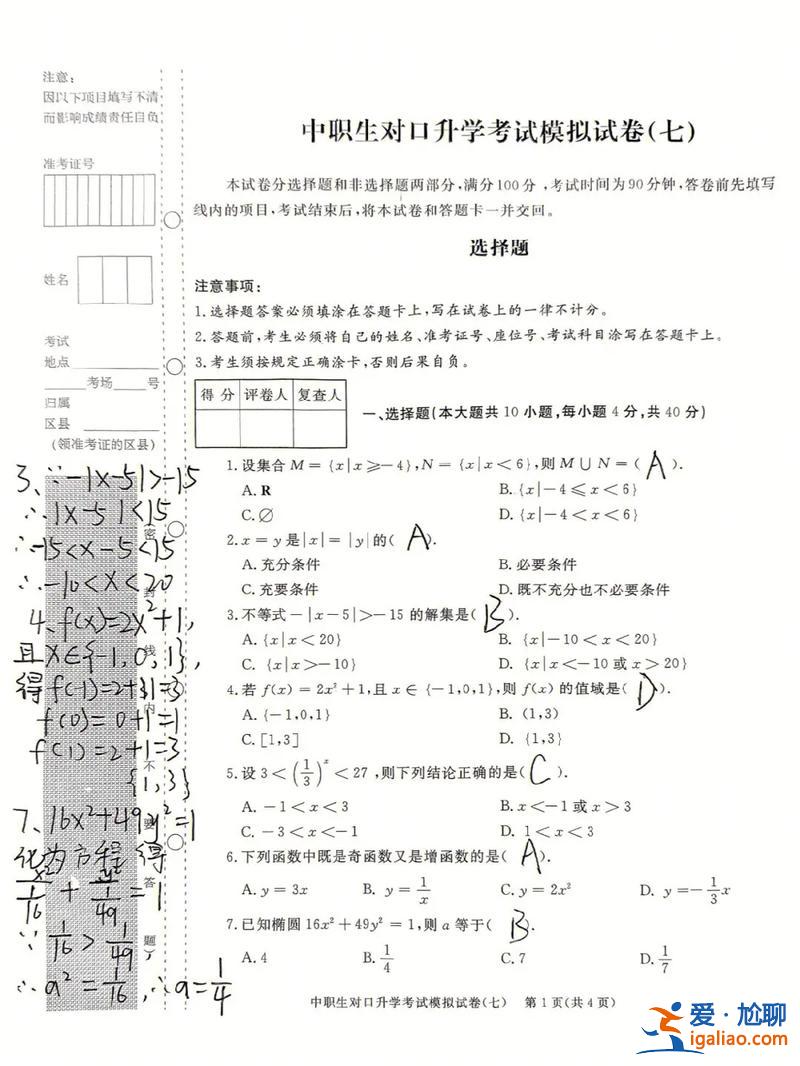 注意:
因以下项目填写不清
而影响成绩责任自负
准考证号
姓名
考试
地点
考场 号
归属
区县
(领准考证的区县)
中职生对口升学考试模拟试卷(七)
本试卷分选择题和非选择题两部分,满分100分,考试时间为90分钟,答卷前先填写
线内的项目,考试结束后,将本试卷和答题卡一并交回。
选择题
注意事项:
1.选择题答案必须填涂在答题卡上,写在试卷上的一律不计分。
2.答题前,考生必须将自己的姓名、准考证号、座位号、考试科目涂写在答题卡上。
3.考生须按规定正确涂卡,否则后果自负。
得 分 评卷人 复查人
一、选择题(本大题共 10 小题,每小题 4 分,共 40 分)
1.设集合 M={x|x⩾-4},N={x|x<6},则 M∪N=( A ).
A. R B. {x|-4⩽x<6}
C. ∅ D. {x|-4<x<6}
2. x=y 是|x|=|y|的( A ).
A. 充分条件 B. 必要条件
C. 充要条件 D. 既不充分也不必要条件
3. 不等式-|x-5|>-15 的解集是( B ).
A. {x|x<20} B. {x|-10<x<20}
C. {x|x>-10} D. {x|x<-10 或 x>20}
4. 若 f(x)=2x²+1,且 x∈{-1,0,1},则 f(x) 的值域是( D ).
A. {-1,0,1} B. (1,3)
C. [1,3] D. {1,3}
5. 设 3<(1/3)ˣ<27 ,则下列结论正确的是( C ).
A. -1<x<3 B. x<-1 或 x>3
C. -3<x<-1 D. 1<x<3
6. 下列函数中既是奇函数又是增函数的是( A ).
A. y=3x B. y=1/x C. y=2x² D. y=-1/3x
7. 已知椭圆 16x²+49y²=1,则 a 等于( B .
A. 4 B. 1/4 C. 7 D. 1/7
中职生对口升学考试模拟试卷(七) 第 1 页(共 4 页)
3、∵-|x-5|>-15
∴|x-5|<15
∴-15<x-5<15
∴-10<x<20
4、f(x)=2x²+1,
且x∈{-1,0,1},
得f(-1)=2+1=3
f(0)=0+1=1
f(1)=2+1=3
{1,3}
7、16x²+49y²=1
化为方程得
x²/(1/16)+y²/(1/49)=1
∵1/16>1/49
∴a²=1/16,∴a=1/4
密
封
线
内
不
要
答
题
爱·尬聊
igaliao.com